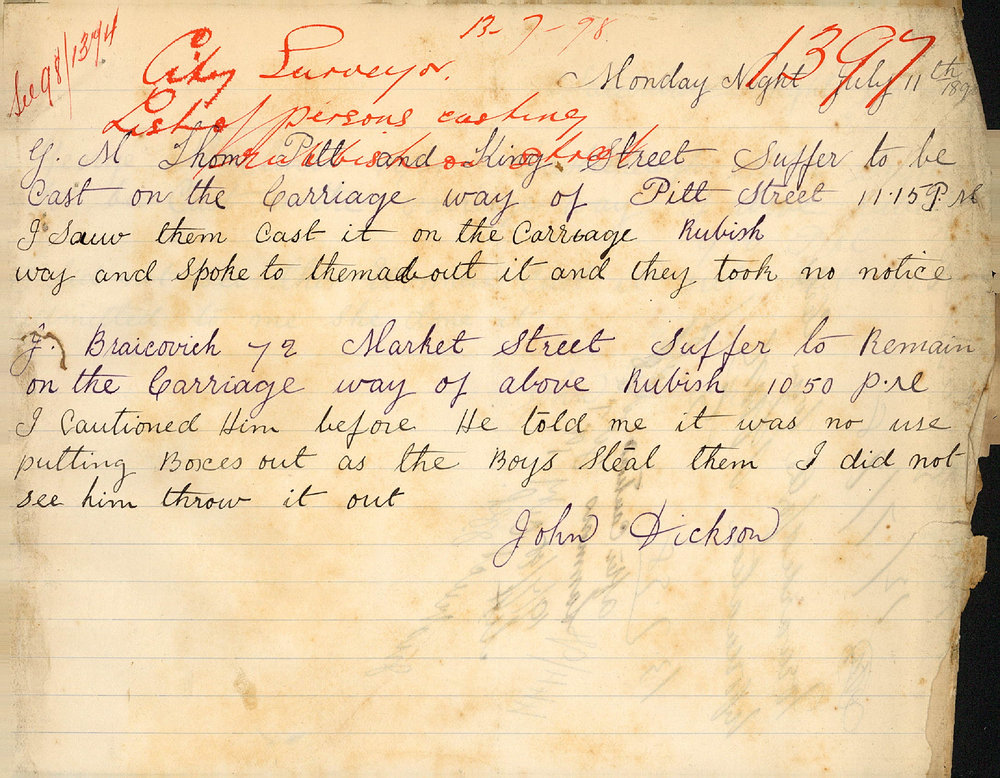 See 98/1394
13-7-98
1397
City Surveyor.
Monday Night July 11th 189
List of persons casting
rubbish on street
G. M Thom Pitt and King Street Suffer to be
Cast on the Carriage way of Pitt Street 11.15 P.M
I Sauw them Cast it on the Carriage Rubish
way and Spoke to them about it and they took no notice
J. Braicovich 72 Market Street Suffer to Remain
on the Carriage way of above Rubish 10 50 P.M
I Cautioned Him before He told me it was no use
putting Boxes out as the Boys Steal them I did not
see him throw it out
John Dickson